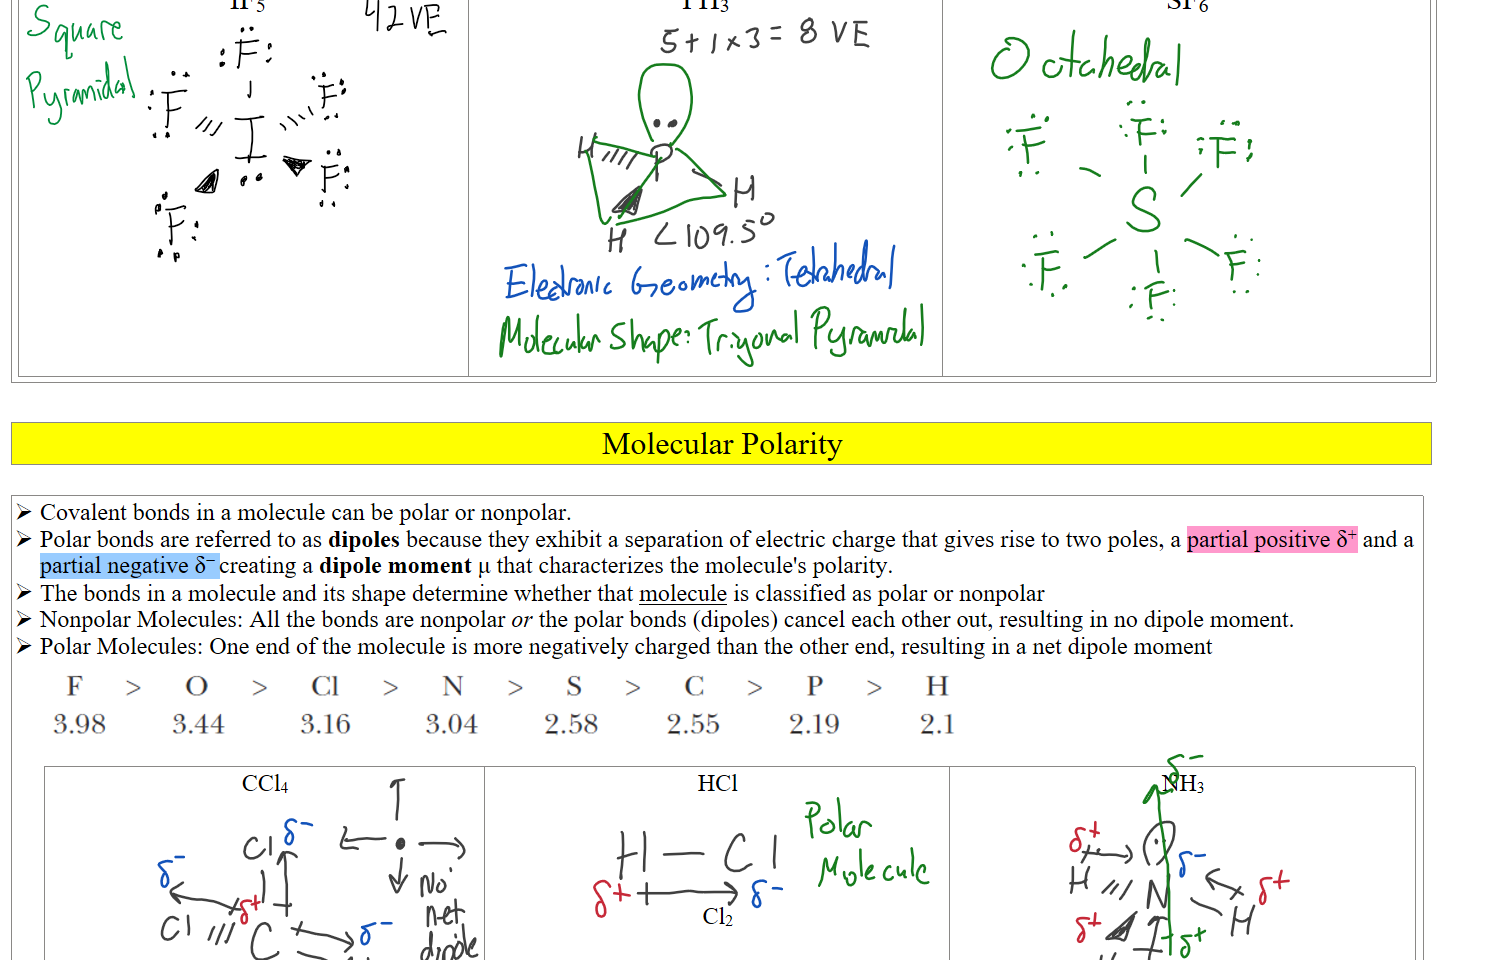 IF5
PH3
SF6
Square
Pyramidal
42VE
:F:
:F
F:
I
F:
F:
5+1×3= 8 VE
H
P
H
H <109.5°
Electronic Geometry: Tetrahedral
Molecular Shape: Trigonal Pyramidal
Octahedral
:F
:F:
:F:
S
:F
F:
:F:
Molecular Polarity
➢ Covalent bonds in a molecule can be polar or nonpolar.
➢ Polar bonds are referred to as dipoles because they exhibit a separation of electric charge that gives rise to two poles, a partial positive δ⁺ and a
partial negative δ⁻ creating a dipole moment μ that characterizes the molecule's polarity.
➢ The bonds in a molecule and its shape determine whether that molecule is classified as polar or nonpolar
➢ Nonpolar Molecules: All the bonds are nonpolar or the polar bonds (dipoles) cancel each other out, resulting in no dipole moment.
➢ Polar Molecules: One end of the molecule is more negatively charged than the other end, resulting in a net dipole moment
F > O > Cl > N > S > C > P > H
3.98 3.44 3.16 3.04 2.58 2.55 2.19 2.1
CCl4
Cl δ-
δ-
δ+
Cl C δ-
No
net
dipole
HCl
H — Cl
δ+ δ-
Polar
Molecule
Cl2
NH3
δ-
δ+
δ-
H N δ+
H
δ+
δ+